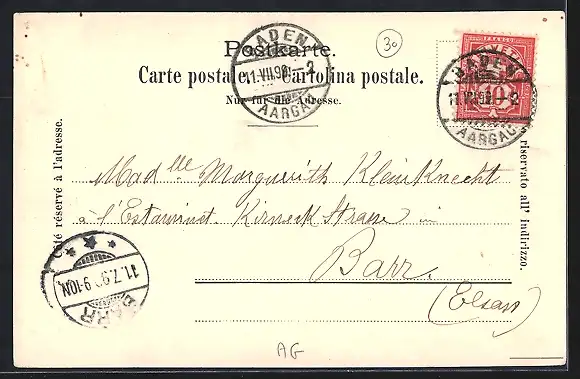 30
Postkarte.
Carte postale. — Cartolina postale.
Nur für die Adresse.
BADEN
11.VII.98.–2
AARGAU
FRANCO
10
BADEN
11.VII.98.–2
AARGAU
Côté réservé à l'adresse.
riservato all' indirizzo.
Mad lle Marguerith KleinKnecht
à l'Estaminet Kirneck Strasse in
Barr
(Elsass)
BARR
11.7.98 9-10N.
AG